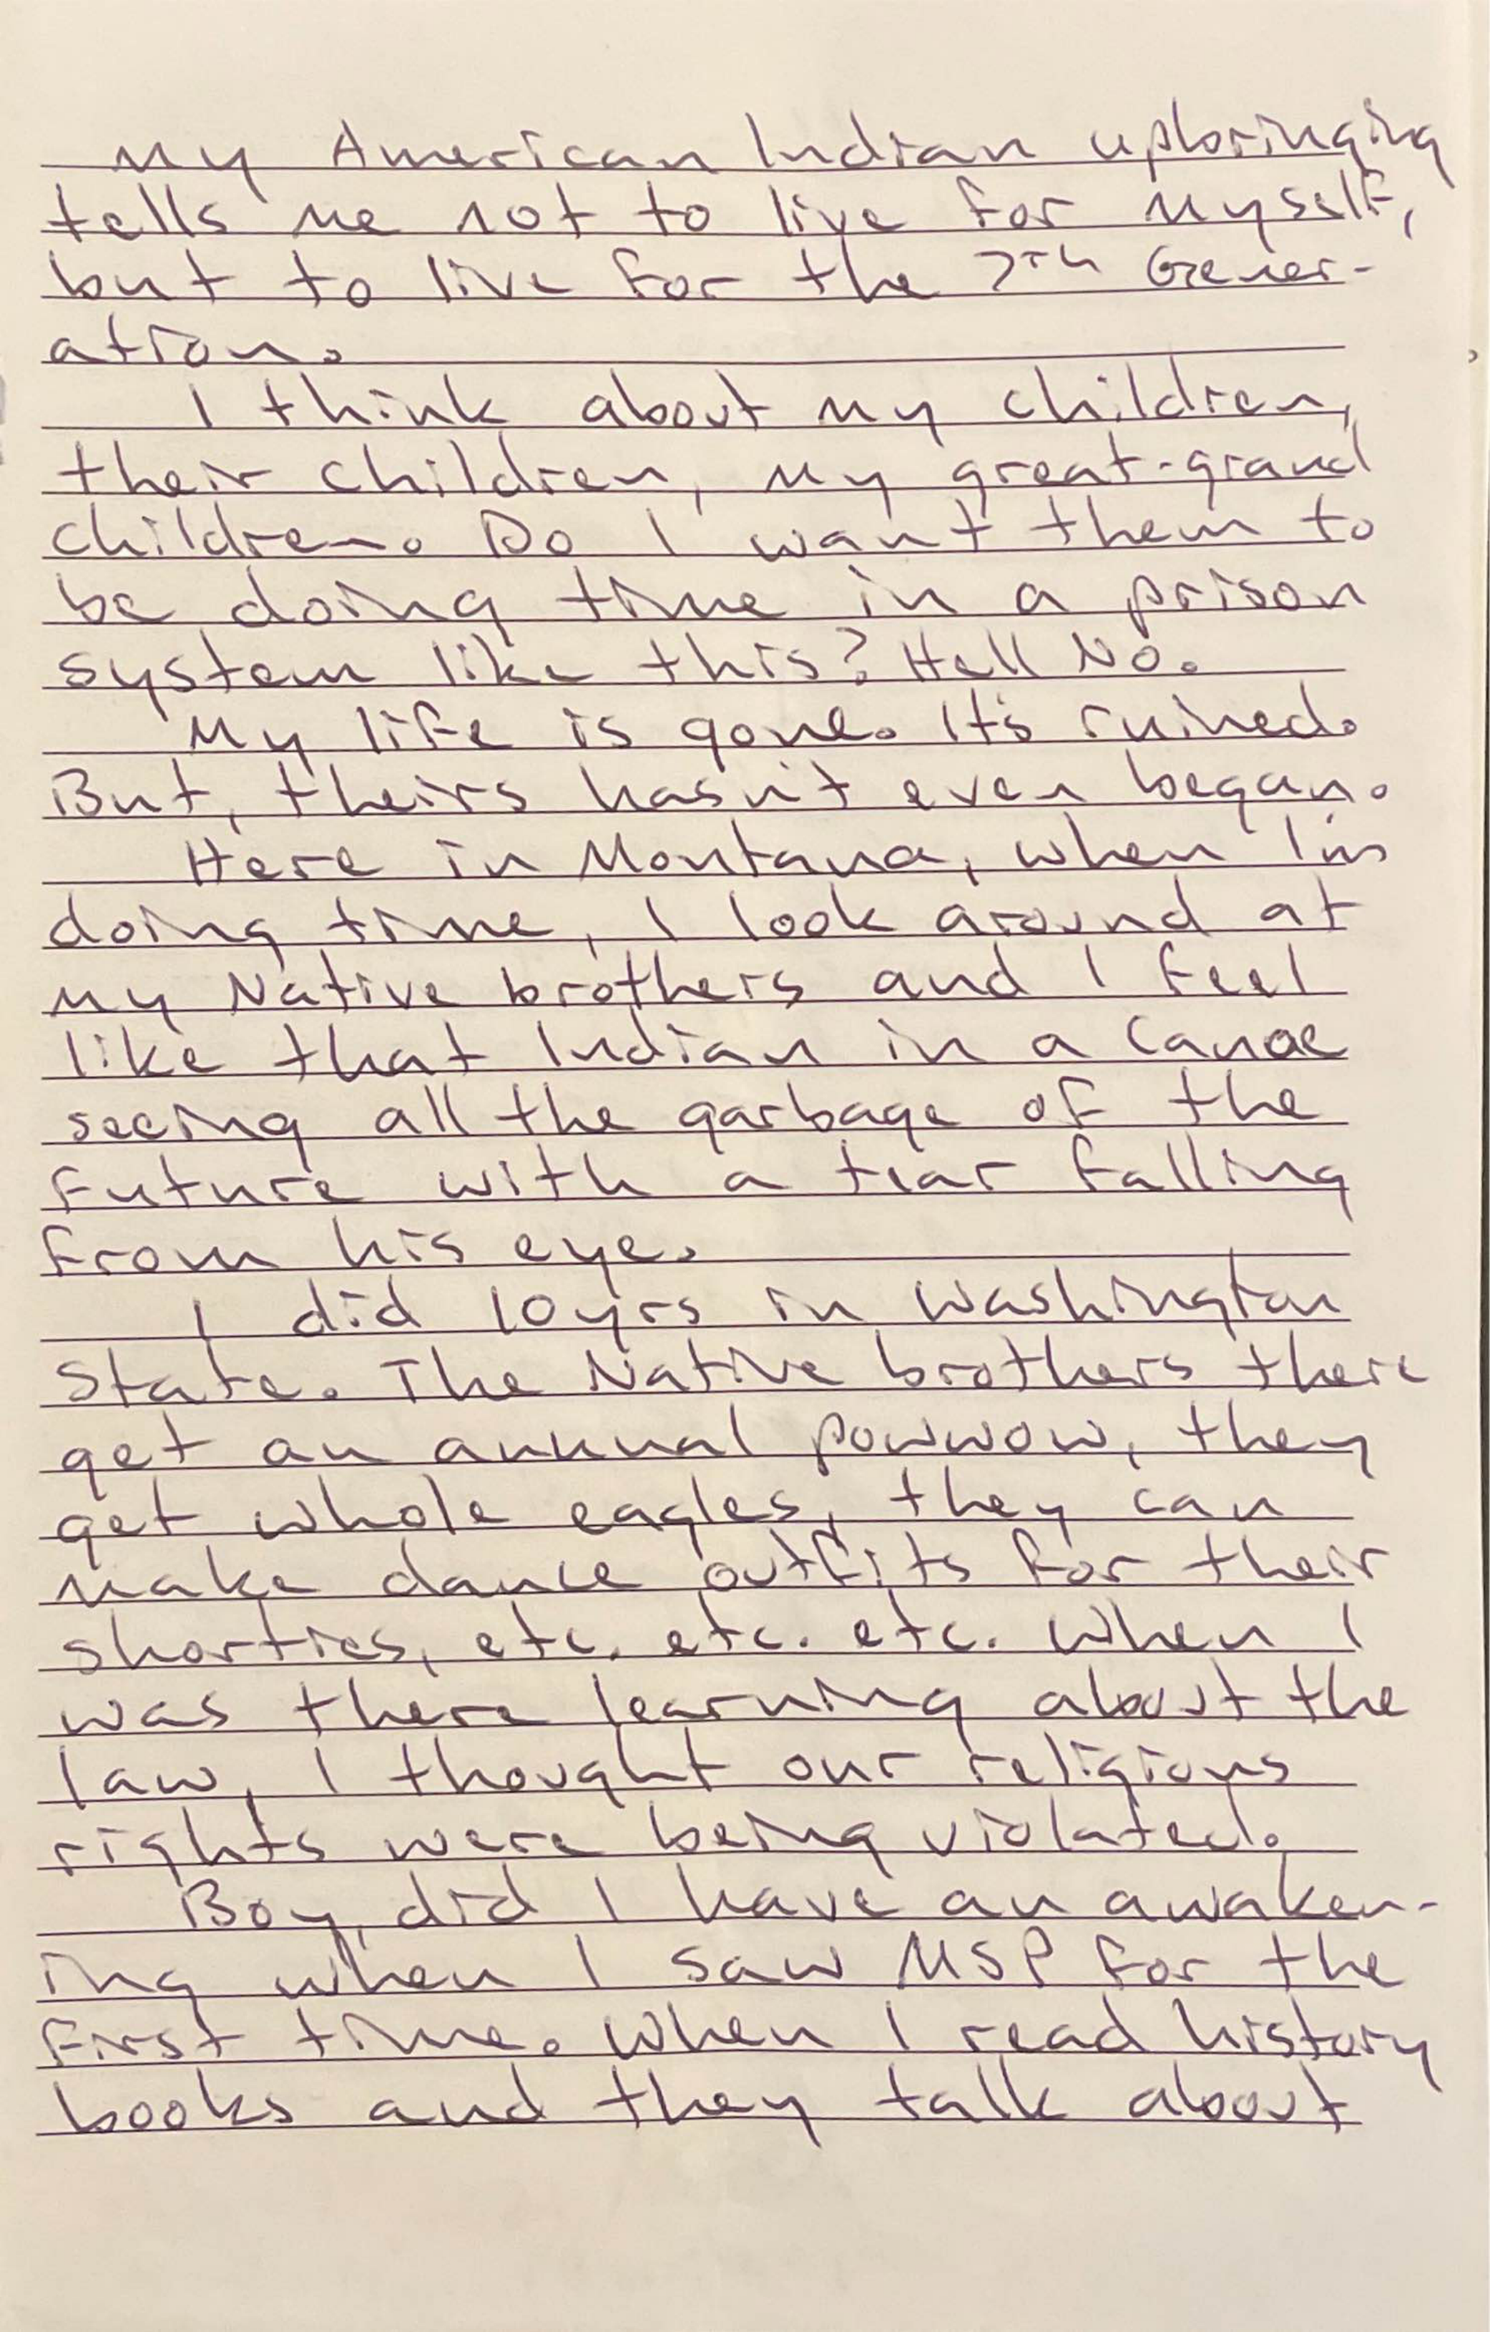 My American Indian upbringing
tells me not to live for myself,
but to live for the 7th Gener-
ation.
I think about my children,
their children, my great-grand
children. Do I want them to
be doing time in a prison
system like this? Hell No.
My life is gone. It's ruined.
But, theirs hasn't even began.
Here in Montana, when I'm
doing time, I look around at
my Native brothers and I feel
like that Indian in a Canoe
seeing all the garbage of the
future with a tear falling
from his eye.
I did 10yrs in Washington
State. The Native brothers there
get an annual powwow, they
get whole eagles, they can
make dance outfits for their
shorties, etc. etc. etc. When I
was there learning about the
law, I thought our religious
rights were being violated.
Boy, did I have an awaken-
ing when I saw MSP for the
first time. When I read history
books and they talk about